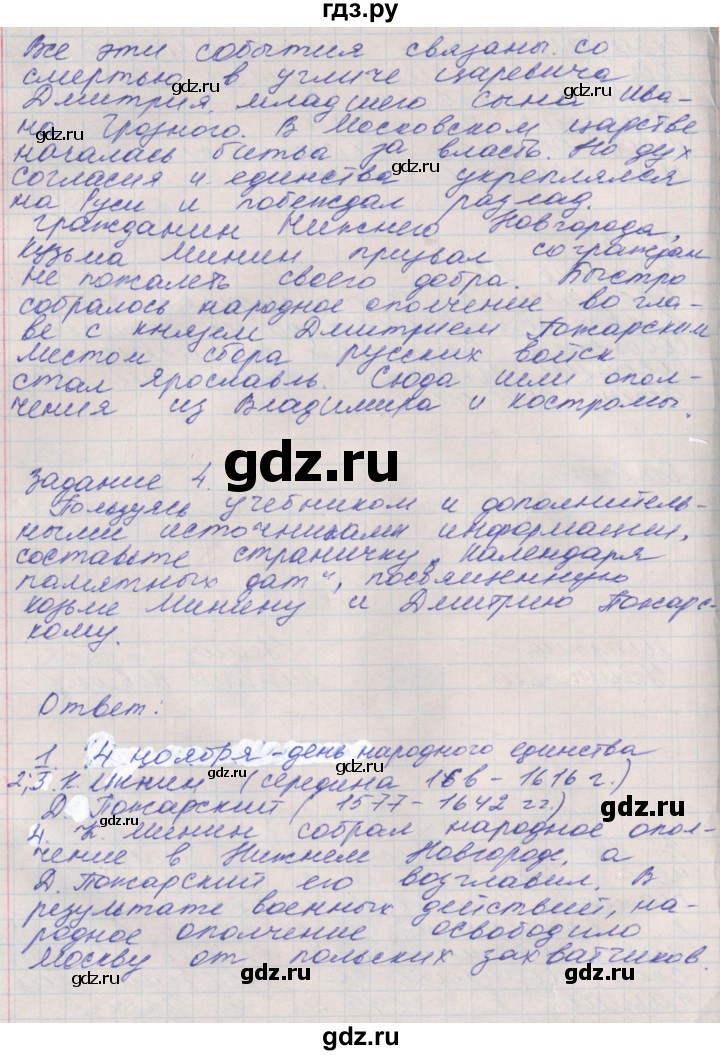 гдз.ру
Все эти события связаны со
смертью в угличе царевича
Дмитрия младшего сына Ива-
на Грозного. В Московском царстве
началась битва за власть. Но дух
согласия и единства укреплялся
на Руси и побеждал разлад.
Гражданин Нижнего Новгорода,
Кузьма Минин призвал сограждан
не пожалеть своего добра. Быстро
собралось народное ополчение во гла-
ве с князем Дмитрием Пожарским
Местом сбора русских войск
стал Ярославль. Сюда шли опол-
чения из Владимира и Костромы.
gdz.ru
Задание 4.
Пользуясь учебником и дополнитель-
ными источниками информации,
составьте страничку „Календаря
памятных дат", посвященную
козьме Минину и Дмитрию Пожарс-
кому.
Ответ:
1. 4 ноября - день народного единства
2,3. К Минин (середина 16в - 1616 г.)
Д. Пожарский (1577 - 1642 гг.)
4. К. Минин собрал народное опол-
чение в Нижнем Новгороде, а
Д. Пожарский его возглавил. В
результате военных действий, на-
родное ополчение освободило
Москву от польских захватчиков.
gdz.ru